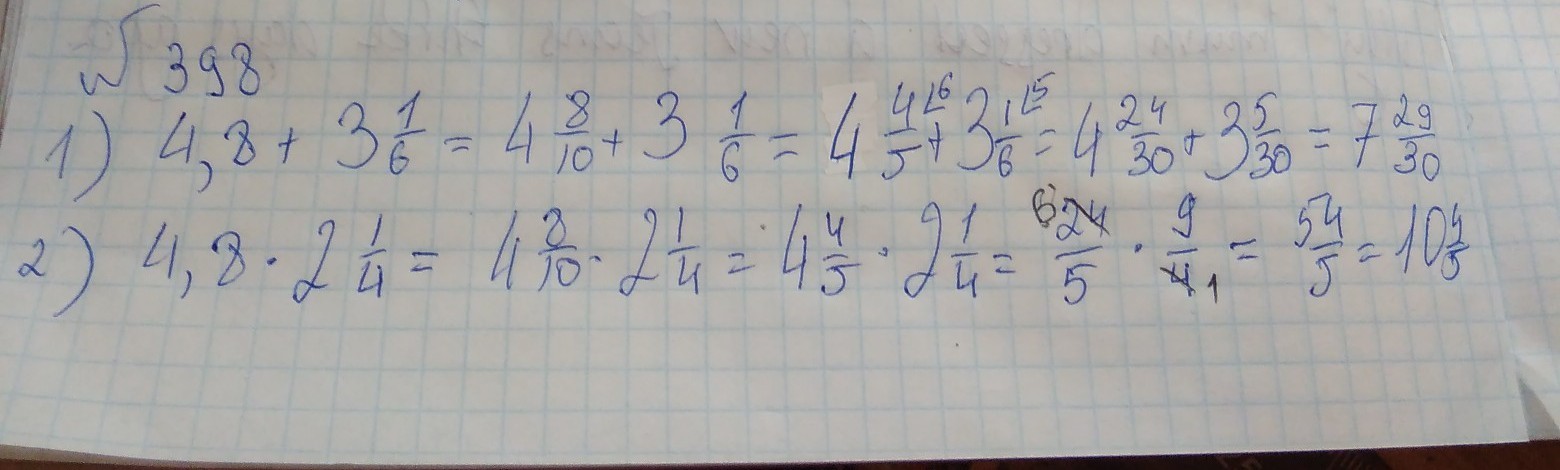 № 398
1) 4,8 + 3 1/6 = 4 8/10 + 3 1/6 = 4 4/5 ⌊6 + 3 1/6 ⌊5 = 4 24/30 + 3 5/30 = 7 29/30
2) 4,8 · 2 1/4 = 4 8/10 · 2 1/4 = 4 4/5 · 2 1/4 = 6 24/5 · 9/4 1 = 54/5 = 10 4/5